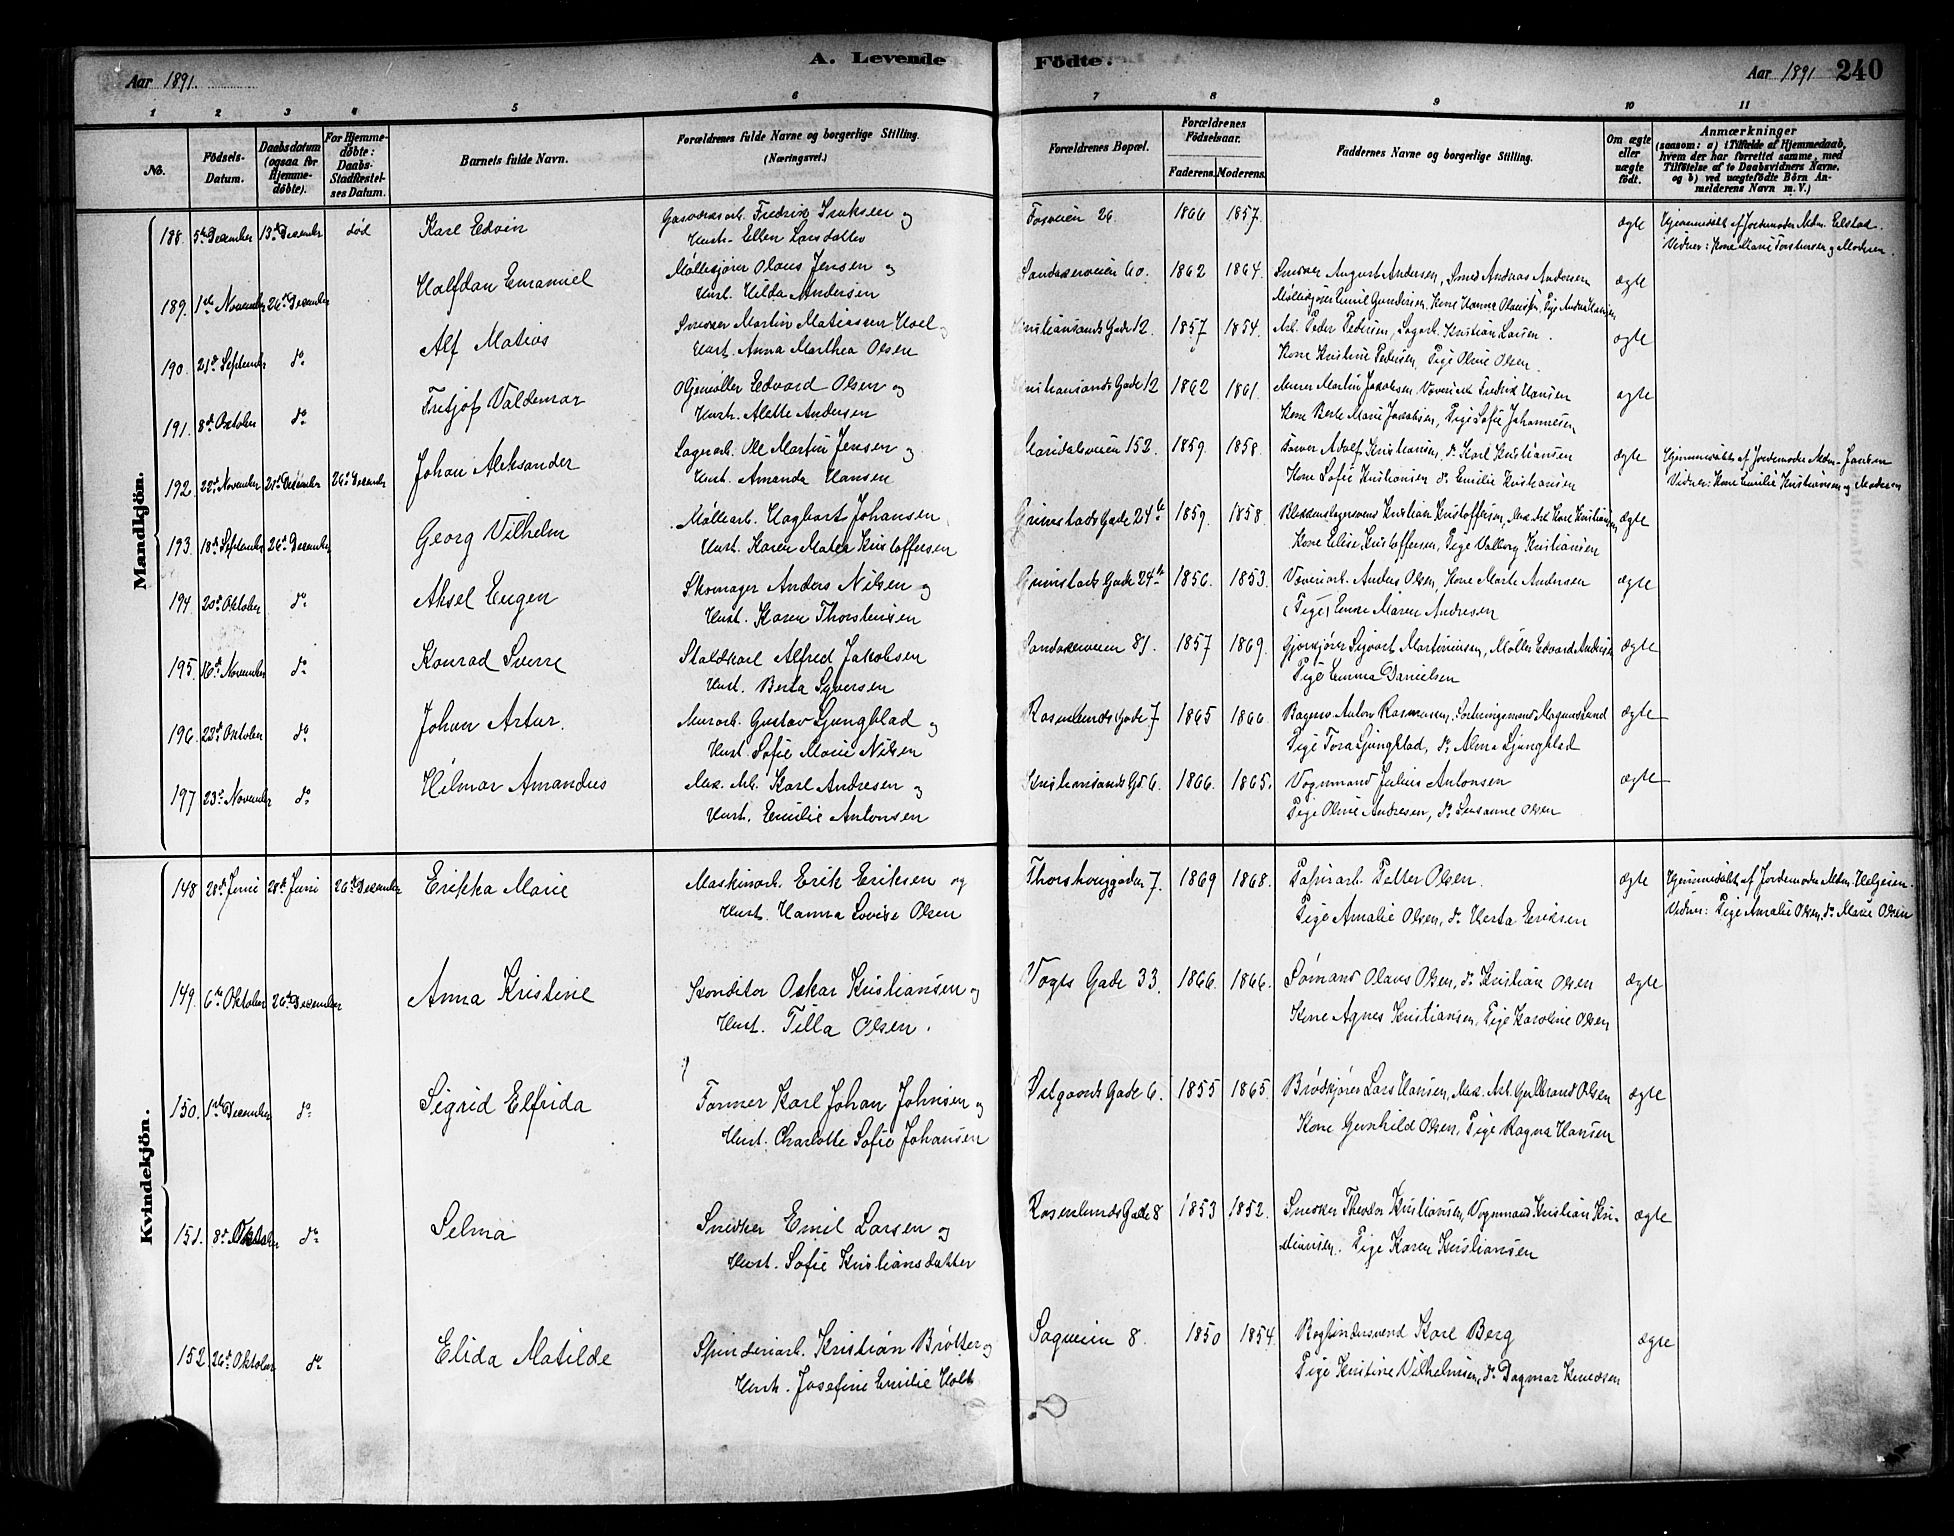 Aar 1891.
A. Levende
Födte.
Aar 1891
240
1 2 3 4 5 6 7 8 9 10 11
No.
Födsels-Datum.
Daabsdatum (ogsaa for Hjemmedöbte).
For Hjemmedöbte: Daabs-Stadfæstelses Datum.
Barnets fulde Navn.
Forældrenes fulde Navne og borgerlige Stilling.
(Næringsvei.)
Forældrenes Bopæl.
Forældrenes Födselsaar.
Faderens. Moderens.
Faddernes Navne og borgerlige Stilling.
Om ægte eller uægte födt.
Anmærkninger
(saasom: a) i Tilfælde af Hjemmedaab,
hvem der har forrettet samme, med
Tilföielse af to Daabsvidners Navne,
og b) ved uægtefödte Börn An-
melderens Navn m. V.)
Mandkjön.
188. 5te December 13de December död Karl Edvin Fredrik Isaksen og
Hust. Ellen Larsdatter
Fosveien 26 1866 1857. ægte Hjemmedøbt af Jordemoder Mdm. Elstad.
Vidner: Kone Marie Torstensen og Moderen.
189. 1ste November 26de December Halfdan Emanuel Møllekjører Olaus Jensen og
Hust. Hilda Andersen
Sandakerveien 60. 1862 1864. Snedker August Andersen, Smed Andreas Andersen
Møllekjører Emil Gundersen, Kone Hanne Olausen, Pige Andrea Hansen
ægte
190. 21de September do Alf Matias Snedker Martin Matiassen Hoel og
Hust. Anna Marthea Olsen
Kristiansands Gade 12. 1857 1854. Arb. Peder Pedersen, Sagarb. Kristian Larsen.
Kone Kristine Pedersen, Pige Oline Olsen.
ægte
191. 8de Oktober do Fritjof Valdemar Oljemøller Edvard Olsen og
Hust. Alette Andersen
Kristiansands Gade 12 1862 1861. Murer Martin Jakobsen, Fredrik Hansen
Kone Berte Marie Jakobsen, Pige Sofie Johannesen
ægte
192. 22de November 25de December 26de December Johan Aleksander Lagerarb. Ole Martin Jensen og
Hust. Amanda Hansen
Maridalsveien 152. 1859. 1858. Farver Adolf Kristiansen, do Karl Kristiansen
Kone Sofie Kristiansen do Emilie Kristiansen
ægte Hjemmedøbt af Jordemoder Mdm. Jansen
Vidner: Kone Emilie Kristiansen og Moderen
193. 18de September 26de December Georg Vilhelm Møllearb. Hagbart Johansen
Hust. Karen Matea Kristoffersen
Grimstads Gade 24b 1859. 1858. Blikkenslagersvend Kristian Kristoffersen, Mek. Arb. Kristiansen
Kone Elise Kristoffersen, Pige Valborg Kristiansen
ægte
194. 20de Oktober do Aksel Eugen Skomager Anders Nilsen og
Hust. Karen Thorstensen
Grimstads Gade 24b 1856. 1853. Væveriarb. Anders Olsen, Kone Marte Andersen
(Pige) Emma Maren Andresen
ægte
195. 16de November do Konrad Sverre Staldkarl Alfred Jakobsen
Hust. Berta Syversen
Sandakerveien 81. 1857 1869. Gjørkjører Sigvart Martinsen, Møller Edvard Andersen
Pige Emma Danielsen
ægte
196. 22de Oktober do Johan Artur. Murarb. Gustav Ljungblad og
Hust. Sofie Marie Nilsen
Rosenlunds Gade 7 1865 1866. Bager Anton Rasmussen, Magnus Lund
Pige Tora Ljungblad, do Alma Ljungblad
ægte
197 23de November do Hilmar Amandus Mek. Arb. Karl Andresen og
Hust. Emilie Antonsen
Kristiansands Gd. 6. 1866. 1865. Vognmand Julius Antonsen
Pige Oline Andresen, do Susanne Olsen
ægte
Kvindekjön.
148 28de Juni 28de Juni 26de December Erikka Marie Maskinarb. Erik Eriksen og
Hust. Hanna Lovise Olsen
Thorshouggaden 7. 1869 1868. Papirarb. Petter Olsen.
Pige Amalie Olsen, do Herta Eriksen
ægte Hjemmedøbt af Jordemoder Mdm. Helgesen.
Vidner: Pige Amalie Olsen, do Marie Olsen
149. 6te Oktober 26de December Anna Kristine Konditor Oskar Kristiansen og
Hust. Tilla Olsen.
Vogts Gade 33. 1866. 1866. Sømand Olaus Olsen, do Kristian Olsen
Kone Agnes Kristiansen, Pige Karoline Olsen
ægte
150. 1ste December do Sigrid Elfrida Former Karl Johan Johnsen og
Hust. Charlotte Sofie Johansen
Østgaards Gade 6. 1855 1865. Brødkjører Lars Hansen, Mek. Arb. Gulbrand Olsen
Kone Gunhild Olsen, Pige Ragna Hansen
ægte
151. 8de Oktober do Selma Snedker Emil Larsen og
Hust. Sofie Kristiansdatter
Rosenlunds Gade 8 1853 1852. Snedker Theodor Kristiansen, Vognmand Kristian Kri-
stiansen. Pige Karen Kristiansen
ægte
152 26de Oktober do Elida Matilde Spinderiarb. Kristian Bråtter og
Hust. Josefine Emilie Holt
Sagveien 8. 1850 1854. Bogbindersvend Karl Berg
Pige Kristine Vilhelmsen, do Dagmar Knudsen
ægte